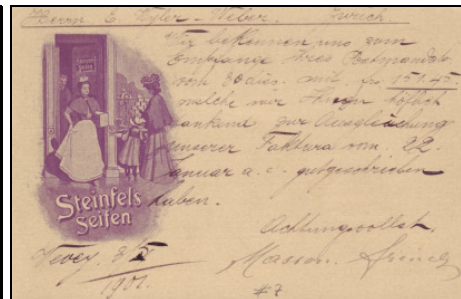 Herrn E. Wyler-Weber. Zürich
Wir bekennen uns zum
Empfange Ihres Postmandats
vom 30 dies. mit fr 151.45.
welche wir Ihnen höflichst
dankend zur Ausgleichung
unserer Faktura vom 22.
Januar a. c. gutgeschrieben
haben.
Steinfels
Seifen
Achtungsvollst.
Vevey, 3/V
1901.
#7